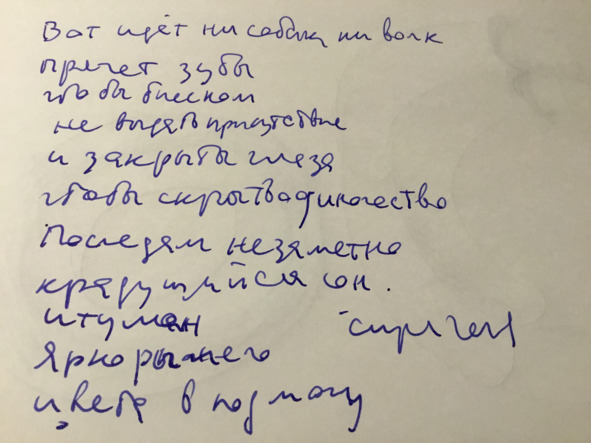 Вот идёт ни собака ни волк
прячет зубы
чтобы блеском
не выдать присутствие
и закрыты глаза
чтобы скрыть
незаметно
крадущийся он.
и туман
Ярко рыжего
цвета в подмогу